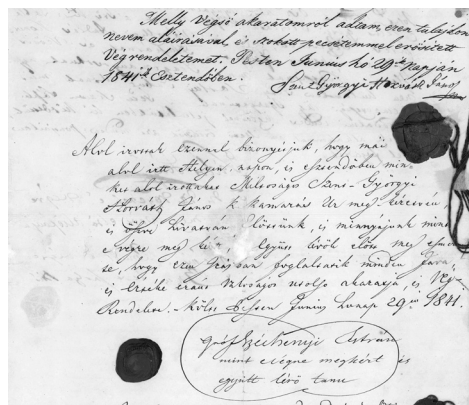 Melly végső akaratomról adtam, ezen tulajdon
nevem aláirásával, és szokott pecsétemmel erősített
Végrendeletemet. Pesten Junius hó 29ik napján
1841ik Esztendőben.
Szent Györgyi Horváth János
Alol irottak ezennel bizonyitjuk, hogy mái
alol irtt helyen, napon, és esztendőben min-
ket alol irottakat Méltóságos Szent-Györgyi
Horváth János k kamarás Ur meg
és hivatván Előttünk, és mindnyájunk
végre meg Együtt lévők előtt meg
te, hogy ezen foglaltatik minden Java,
és Értéke eránt utolsó akaratja, és Vég-
Rendelete. Költt Pesten Junius honap 29én 1841.
gróf Széchenyi István
mint e végre megkért és
együtt lévő tanu